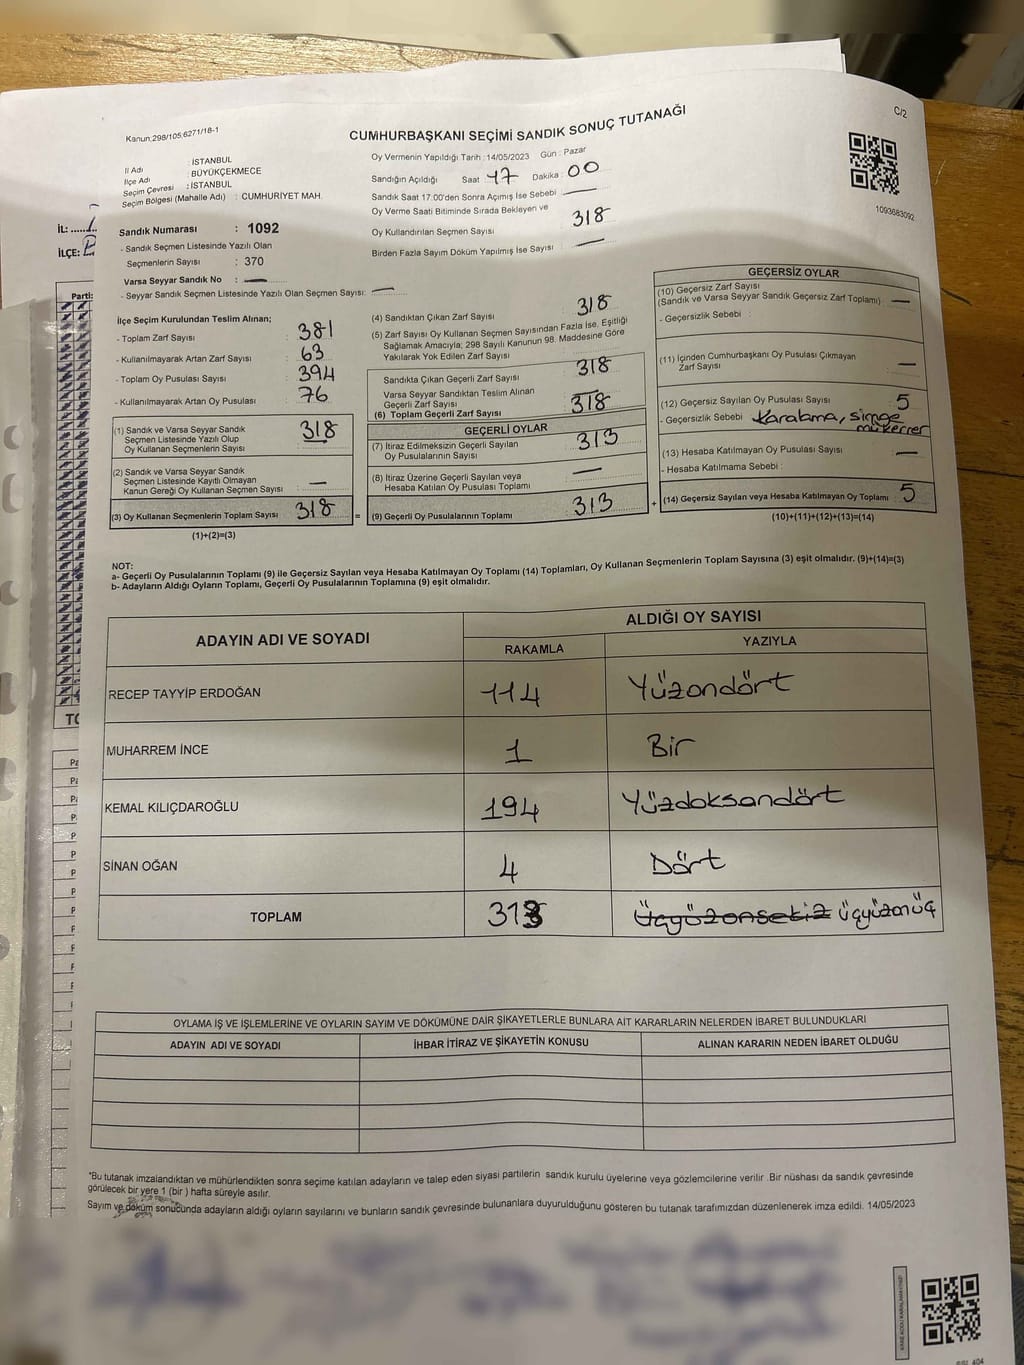 Kanun:298/105;6271/18-1
CUMHURBAŞKANI SEÇİMİ SANDIK SONUÇ TUTANAĞI
C/2
İl Adı : İSTANBUL
İlçe Adı : BÜYÜKÇEKMECE
Seçim Çevresi : İSTANBUL
Seçim Bölgesi (Mahalle Adı) : CUMHURİYET MAH.
Oy Vermenin Yapıldığı Tarih : 14/05/2023 Gün : Pazar
Sandığın Açıldığı Saat 17 Dakika : 00
Sandık Saat 17:00'den Sonra Açımış İse Sebebi : —
Oy Verme Saati Bitiminde Sırada Bekleyen ve
Oy Kullandırılan Seçmen Sayısı : 318
Birden Fazla Sayım Döküm Yapılmış İse Sayısı : —
1093683092
İL: ......
İLÇE:
Parti:
Sandık Numarası : 1092
- Sandık Seçmen Listesinde Yazılı Olan
Seçmenlerin Sayısı : 370
Varsa Seyyar Sandık No : —
- Seyyar Sandık Seçmen Listesinde Yazılı Olan Seçmen Sayısı: —
İlçe Seçim Kurulundan Teslim Alınan;
- Toplam Zarf Sayısı : 381
- Kullanılmayarak Artan Zarf Sayısı : 63
- Toplam Oy Pusulası Sayısı : 394
- Kullanılmayarak Artan Oy Pusulası : 76
(1) Sandık ve Varsa Seyyar Sandık
Seçmen Listesinde Yazılı Olup
Oy Kullanan Seçmenlerin Sayısı : 318
(2) Sandık ve Varsa Seyyar Sandık
Seçmen Listesinde Kayıtlı Olmayan
Kanun Gereği Oy Kullanan Seçmen Sayısı : —
(3) Oy Kullanan Seçmenlerin Toplam Sayısı 318 =
(1)+(2)=(3)
(4) Sandıktan Çıkan Zarf Sayısı : 318
(5) Zarf Sayısı Oy Kullanan Seçmen Sayısından Fazla İse, Eşitliği
Sağlamak Amacıyla; 298 Sayılı Kanunun 98. Maddesine Göre
Yakılarak Yok Edilen Zarf Sayısı :
Sandıkta Çıkan Geçerli Zarf Sayısı : 318
Varsa Seyyar Sandıktan Teslim Alınan
Geçerli Zarf Sayısı
(6) Toplam Geçerli Zarf Sayısı : 318
GEÇERLİ OYLAR
(7) İtiraz Edilmeksizin Geçerli Sayılan
Oy Pusulalarının Sayısı : 313
(8) İtiraz Üzerine Geçerli Sayılan veya
Hesaba Katılan Oy Pusulası Toplamı : —
(9) Geçerli Oy Pusulalarının Toplamı : 313 +
GEÇERSİZ OYLAR
(10) Geçersiz Zarf Sayısı
(Sandık ve Varsa Seyyar Sandık Geçersiz Zarf Toplamı) —
- Geçersizlik Sebebi :
(11) İçinden Cumhurbaşkanı Oy Pusulası Çıkmayan
Zarf Sayısı : —
(12) Geçersiz Sayılan Oy Pusulası Sayısı : 5
- Geçersizlik Sebebi : Karalama, simge
mükerrer
(13) Hesaba Katılmayan Oy Pusulası Sayısı : —
- Hesaba Katılmama Sebebi :
(14) Geçersiz Sayılan veya Hesaba Katılmayan Oy Toplamı : 5
(10)+(11)+(12)+(13)=(14)
NOT:
a- Geçerli Oy Pusulalarının Toplamı (9) ile Geçersiz Sayılan veya Hesaba Katılmayan Oy Toplamı (14) Toplamları, Oy Kullanan Seçmenlerin Toplam Sayısına (3) eşit olmalıdır. (9)+(14)=(3)
b- Adayların Aldığı Oyların Toplamı, Geçerli Oy Pusulalarının Toplamına (9) eşit olmalıdır.
ADAYIN ADI VE SOYADI
ALDIĞI OY SAYISI
RAKAMLA YAZIYLA
RECEP TAYYİP ERDOĞAN 114 Yüzondört
MUHARREM İNCE 1 Bir
KEMAL KILIÇDAROĞLU 194 Yüzdoksandört
SİNAN OĞAN 4 Dört
TOPLAM 313 Üçyüzonsekiz üçyüzonüç
OYLAMA İŞ VE İŞLEMLERİNE VE OYLARIN SAYIM VE DÖKÜMÜNE DAİR ŞİKAYETLERLE BUNLARA AİT KARARLARIN NELERDEN İBARET BULUNDUKLARI
ADAYIN ADI VE SOYADI İHBAR İTİRAZ VE ŞİKAYETİN KONUSU ALINAN KARARIN NEDEN İBARET OLDUĞU
*Bu tutanak imzalandıktan ve mühürlendikten sonra seçime katılan adayların ve talep eden siyasi partilerin sandık kurulu üyelerine veya gözlemcilerine verilir .Bir nüshası da sandık çevresinde
görülecek bir yere 1 (bir ) hafta süreyle asılır.
Sayım ve döküm sonucunda adayların aldığı oyların sayılarını ve bunların sandık çevresinde bulunanlara duyurulduğunu gösteren bu tutanak tarafımızdan düzenlenerek imza edildi. 14/05/2023